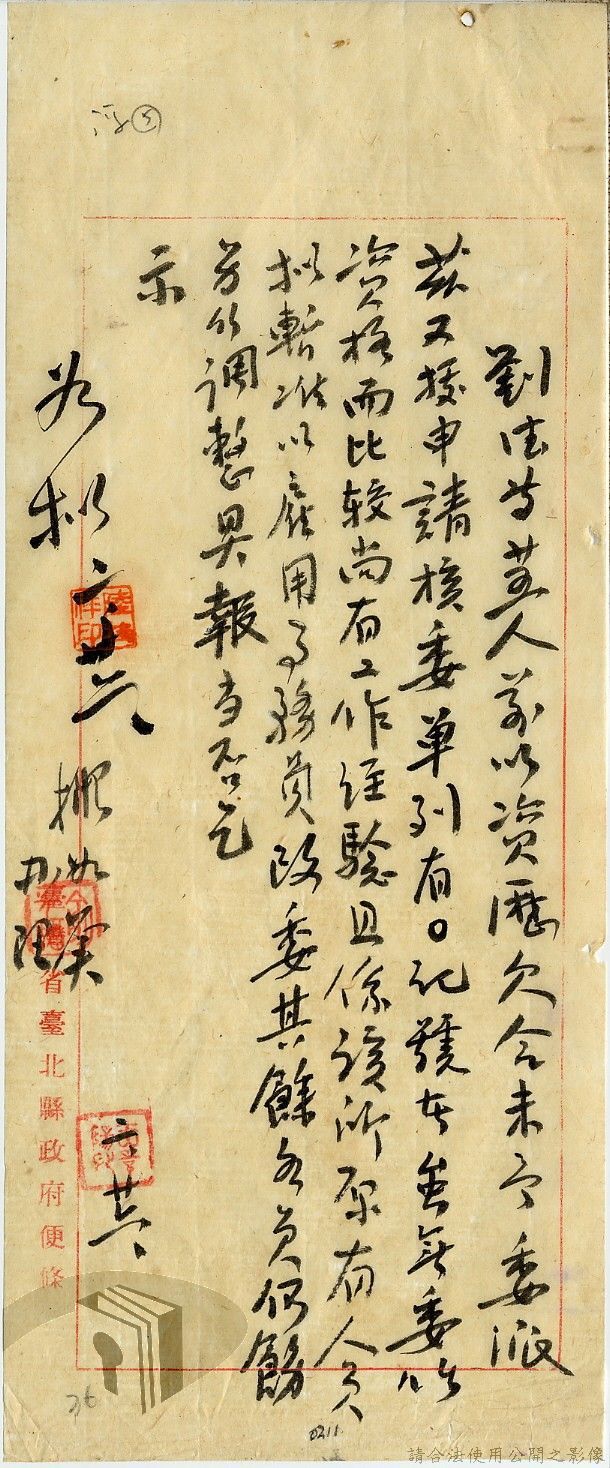 劉德等廿人前以資歷欠合未予委派
茲又據申請核委單列有○記號者虽無委以
資格而比較尚有工作經驗且係該所原有人員
擬暫准以雇用事務員改委其餘各員仍飭
另行調整具報當否乞
示
如擬 二、廿六
擬如
二、廿六
臺灣省臺北縣政府便條
36
0211
請合法使用公開之影像